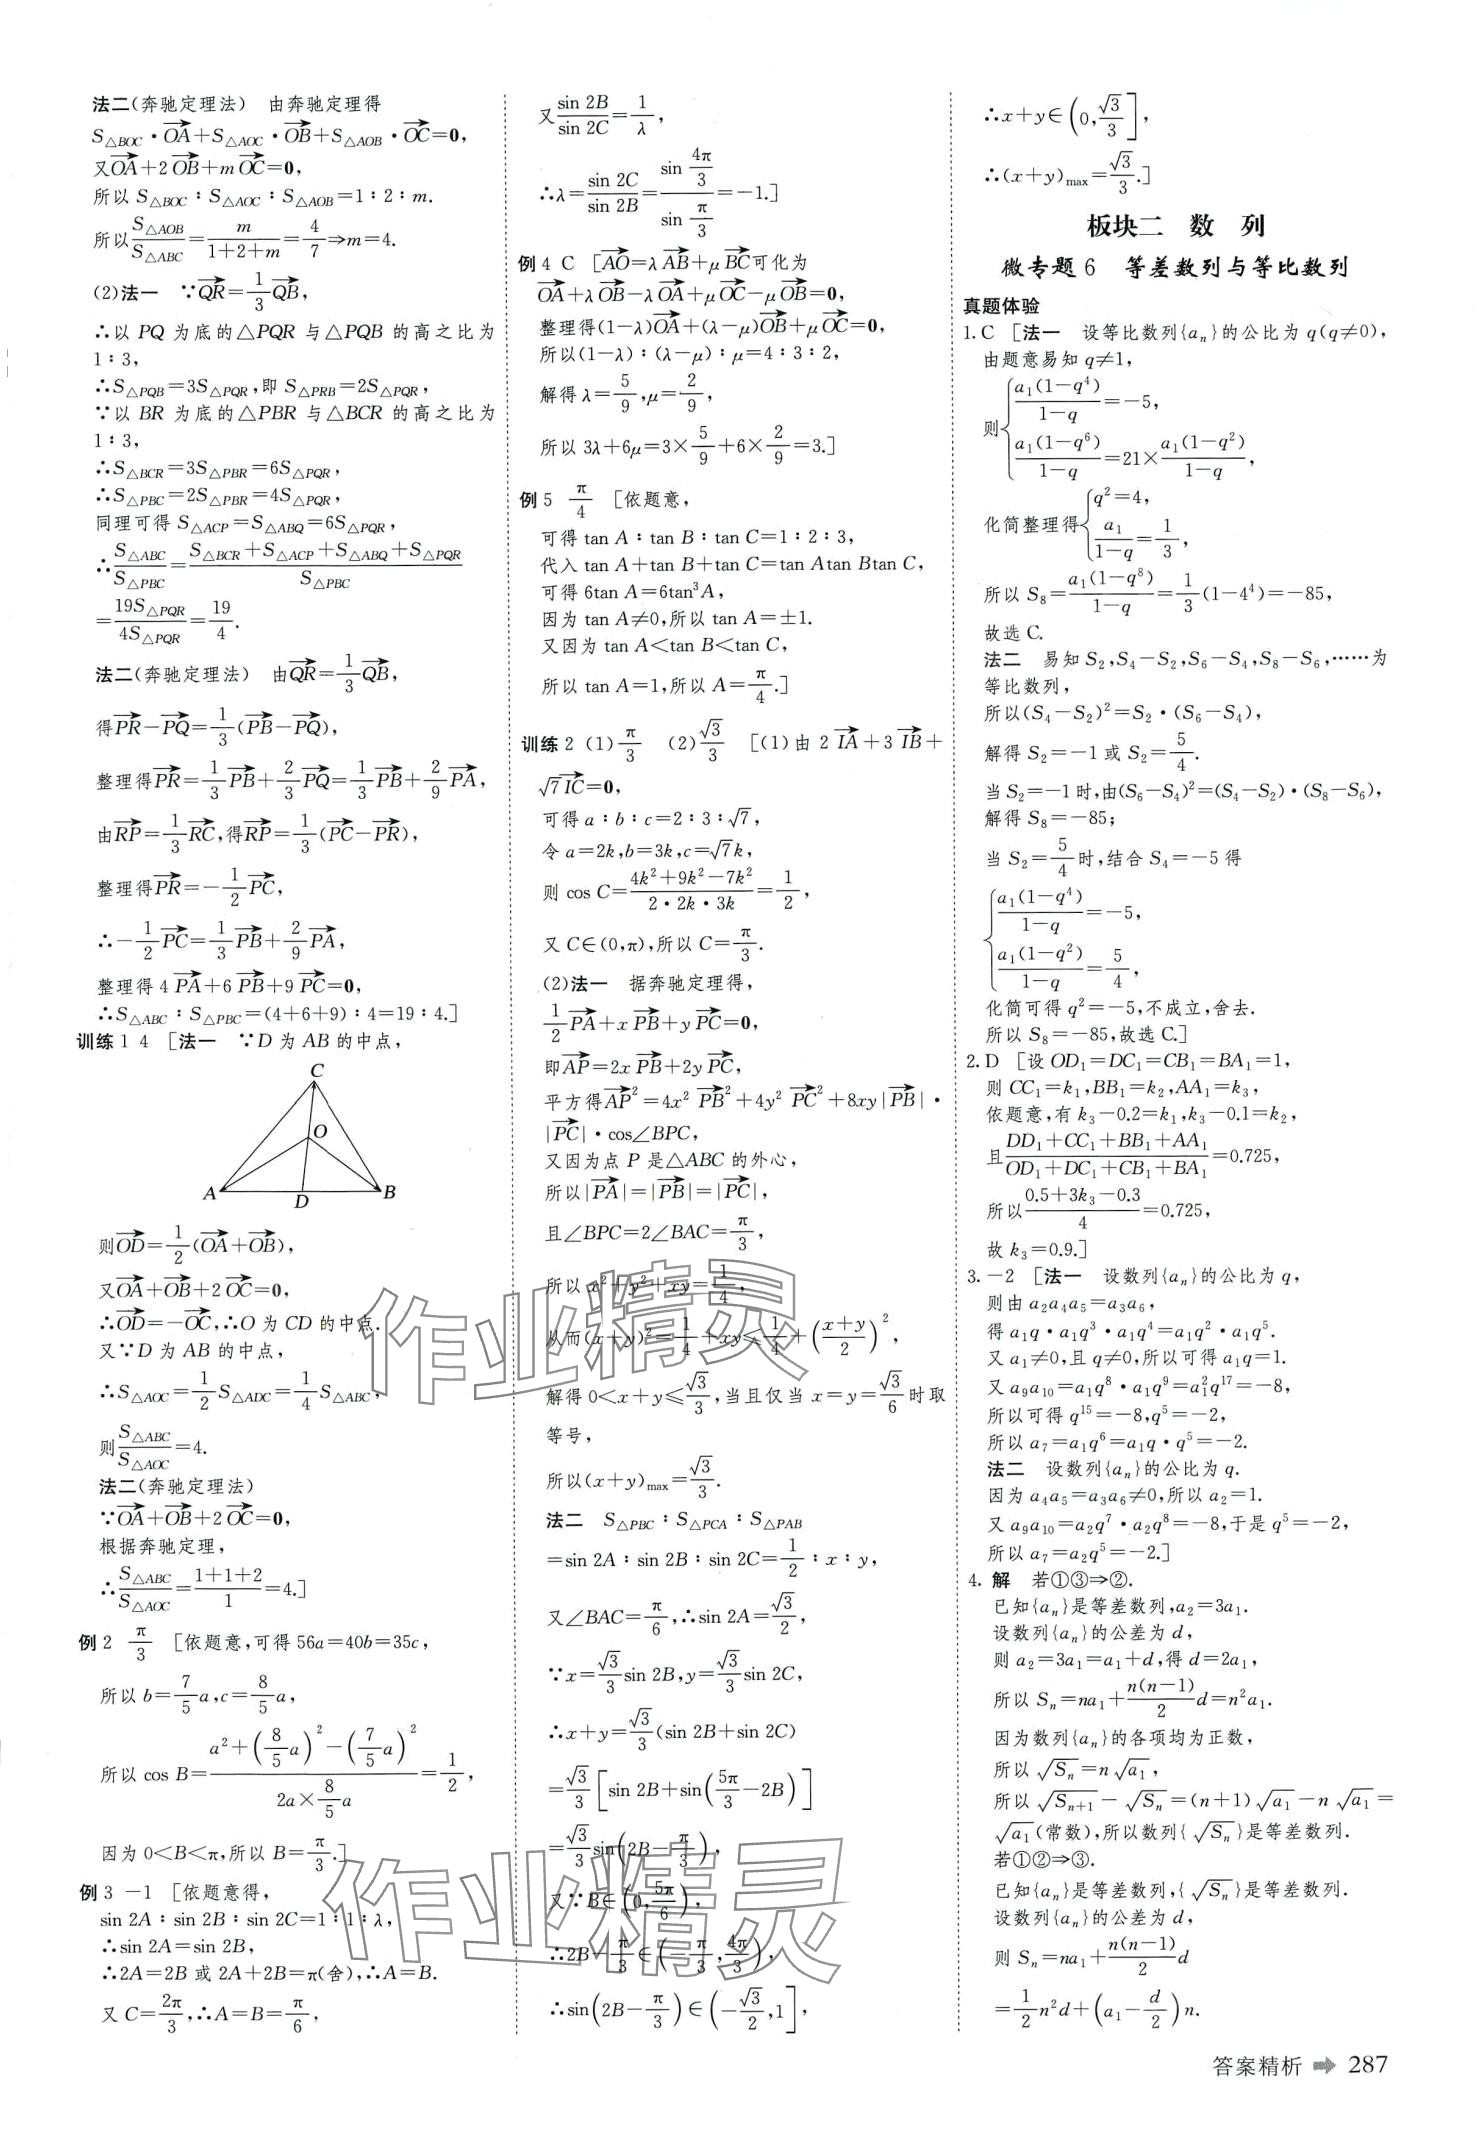 法二(奔驰定理法)　由奔驰定理得
S△BOC·OA→+S△AOC·OB→+S△AOB·OC→=0,
又OA→+2OB→+mOC→=0,
所以 S△BOC∶S△AOC∶S△AOB=1∶2∶m.
所以S△AOB/S△ABC=m/(1+2+m)=4/7⇒m=4.
(2)法一　∵QR→=1/3QB→,
∴以 PQ 为底的△PQR 与△PQB 的高之比为
1∶3,
∴S△PQB=3S△PQR,即 S△PRB=2S△PQR,
∵以 BR 为底的△PBR 与△BCR 的高之比为
1∶3,
∴S△BCR=3S△PBR=6S△PQR,
∴S△PBC=2S△PBR=4S△PQR,
同理可得 S△ACP=S△ABQ=6S△PQR,
∴S△ABC/S△PBC=(S△BCR+S△ACP+S△ABQ+S△PQR)/S△PBC
=19S△PQR/4S△PQR=19/4.
法二(奔驰定理法)　由QR→=1/3QB→,
得PR→-PQ→=1/3(PB→-PQ→),
整理得PR→=1/3PB→+2/3PQ→=1/3PB→+2/9PA→,
由RP→=1/3RC→,得RP→=1/3(PC→-PR→),
整理得PR→=-1/2PC→,
∴-1/2PC→=1/3PB→+2/9PA→,
整理得 4PA→+6PB→+9PC→=0,
∴S△ABC∶S△PBC=(4+6+9)∶4=19∶4.]
训练1 4 [法一　∵D 为 AB 的中点,
C
O
A
D
B
则OD→=1/2(OA→+OB→),
又OA→+OB→+2OC→=0,
∴OD→=-OC→,∴O 为 CD 的中点.
又∵D 为 AB 的中点,
∴S△AOC=1/2S△ADC=1/4S△ABC,
则S△ABC/S△AOC=4.
法二(奔驰定理法)
∵OA→+OB→+2OC→=0,
根据奔驰定理,
∴S△ABC/S△AOC=(1+1+2)/1=4.]
例2 π/3 [依题意,可得 56a=40b=35c,
所以 b=7/5a,c=8/5a,
所以 cos B=(a²+(8/5a)²-(7/5a)²)/(2a×8/5a)=1/2,
因为 0<B<π,所以 B=π/3.]
例3 -1 [依题意得,
sin 2A∶sin 2B∶sin 2C=1∶1∶λ,
∴sin 2A=sin 2B,
∴2A=2B 或 2A+2B=π(舍),∴A=B.
又 C=2π/3,∴A=B=π/6,
又sin 2B/sin 2C=1/λ,
∴λ=sin 2C/sin 2B=sin(4π/3)/sin(π/3)=-1.]
例4 C [AO→=λAB→+μBC→可化为
OA→+λOB→-λOA→+μOC→-μOB→=0,
整理得(1-λ)OA→+(λ-μ)OB→+μOC→=0,
所以(1-λ)∶(λ-μ)∶μ=4∶3∶2,
解得 λ=5/9,μ=2/9,
所以 3λ+6μ=3×5/9+6×2/9=3.]
例5 π/4 [依题意,
可得 tan A∶tan B∶tan C=1∶2∶3,
代入 tan A+tan B+tan C=tan Atan Btan C,
可得 6tan A=6tan³A,
因为 tan A≠0,所以 tan A=±1.
又因为 tan A<tan B<tan C,
所以 tan A=1,所以 A=π/4.]
训练2 (1)π/3　(2)√3/3 [(1)由 2IA→+3IB→+
√7IC→=0,
可得 a∶b∶c=2∶3∶√7,
令 a=2k,b=3k,c=√7k,
则 cos C=(4k²+9k²-7k²)/(2·2k·3k)=1/2,
又 C∈(0,π),所以 C=π/3.
(2)法一　据奔驰定理得,
1/2PA→+xPB→+yPC→=0,
即AP→=2xPB→+2yPC→,
平方得AP→²=4x²PB→²+4y²PC→²+8xy|PB→|·
|PC→|·cos∠BPC,
又因为点 P 是△ABC 的外心,
所以|PA→|=|PB→|=|PC→|,
且∠BPC=2∠BAC=π/3,
所以 x²+y²+xy=1/4,
从而(x+y)²=1/4+xy≤1/4+((x+y)/2)²,
解得 0<x+y≤√3/3,当且仅当 x=y=√3/6时取
等号,
所以(x+y)max=√3/3.
法二　S△PBC∶S△PCA∶S△PAB
=sin 2A∶sin 2B∶sin 2C=1/2∶x∶y,
又∠BAC=π/6,∴sin 2A=√3/2,
∵x=√3/3sin 2B,y=√3/3sin 2C,
∴x+y=√3/3(sin 2B+sin 2C)
=√3/3[sin 2B+sin(5π/3-2B)]
=√3/3sin(2B-π/3),
又∵B∈(0,5π/6),
∴2B-π/3∈(-π/3,4π/3),
∴sin(2B-π/3)∈(-√3/2,1],
∴x+y∈(0,√3/3],
∴(x+y)max=√3/3.]
板块二　数　列
微专题6　等差数列与等比数列
真题体验
1.C [法一　设等比数列{aₙ}的公比为 q(q≠0),
由题意易知 q≠1,
则{a₁(1-q⁴)/(1-q)=-5,
a₁(1-q⁶)/(1-q)=21×a₁(1-q²)/(1-q),
化简整理得{q²=4,
a₁/(1-q)=1/3,
所以 S₈=a₁(1-q⁸)/(1-q)=1/3(1-4⁴)=-85,
故选 C.
法二　易知 S₂,S₄-S₂,S₆-S₄,S₈-S₆,……为
等比数列,
所以(S₄-S₂)²=S₂·(S₆-S₄),
解得 S₂=-1 或 S₂=5/4.
当 S₂=-1时,由(S₆-S₄)²=(S₄-S₂)·(S₈-S₆),
解得 S₈=-85;
当 S₂=5/4时,结合 S₄=-5 得
{a₁(1-q⁴)/(1-q)=-5,
a₁(1-q²)/(1-q)=5/4,
化简可得 q²=-5,不成立,舍去.
所以 S₈=-85,故选 C.]
2.D [设 OD₁=DC₁=CB₁=BA₁=1,
则 CC₁=k₁,BB₁=k₂,AA₁=k₃,
依题意,有 k₃-0.2=k₁,k₃-0.1=k₂,
且(DD₁+CC₁+BB₁+AA₁)/(OD₁+DC₁+CB₁+BA₁)=0.725,
所以(0.5+3k₃-0.3)/4=0.725,
故 k₃=0.9.]
3.-2 [法一　设数列{aₙ}的公比为 q,
则由 a₂a₄a₅=a₃a₆,
得 a₁q·a₁q³·a₁q⁴=a₁q²·a₁q⁵.
又 a₁≠0,且 q≠0,所以可得 a₁q=1.
又 a₉a₁₀=a₁q⁸·a₁q⁹=a₁²q¹⁷=-8,
所以可得 q¹⁵=-8,q⁵=-2,
所以 a₇=a₁q⁶=a₁q·q⁵=-2.
法二　设数列{aₙ}的公比为 q.
因为 a₄a₅=a₃a₆≠0,所以 a₂=1.
又 a₉a₁₀=a₂q⁷·a₂q⁸=-8,于是 q⁵=-2,
所以 a₇=a₂q⁵=-2.]
4. 解　若①③⇒②.
已知{aₙ}是等差数列,a₂=3a₁.
设数列{aₙ}的公差为 d,
则 a₂=3a₁=a₁+d,得 d=2a₁,
所以 Sₙ=na₁+n(n-1)/2d=n²a₁.
因为数列{aₙ}的各项均为正数,
所以 √Sₙ=n√a₁,
所以 √Sₙ₊₁-√Sₙ=(n+1)√a₁-n√a₁=
√a₁(常数),所以数列{√Sₙ}是等差数列.
若①②⇒③.
已知{aₙ}是等差数列,{√Sₙ}是等差数列.
设数列{aₙ}的公差为 d,
则 Sₙ=na₁+n(n-1)/2d
=1/2n²d+(a₁-d/2)n.
答案精析 ➡ 287
作业精灵
作业精灵